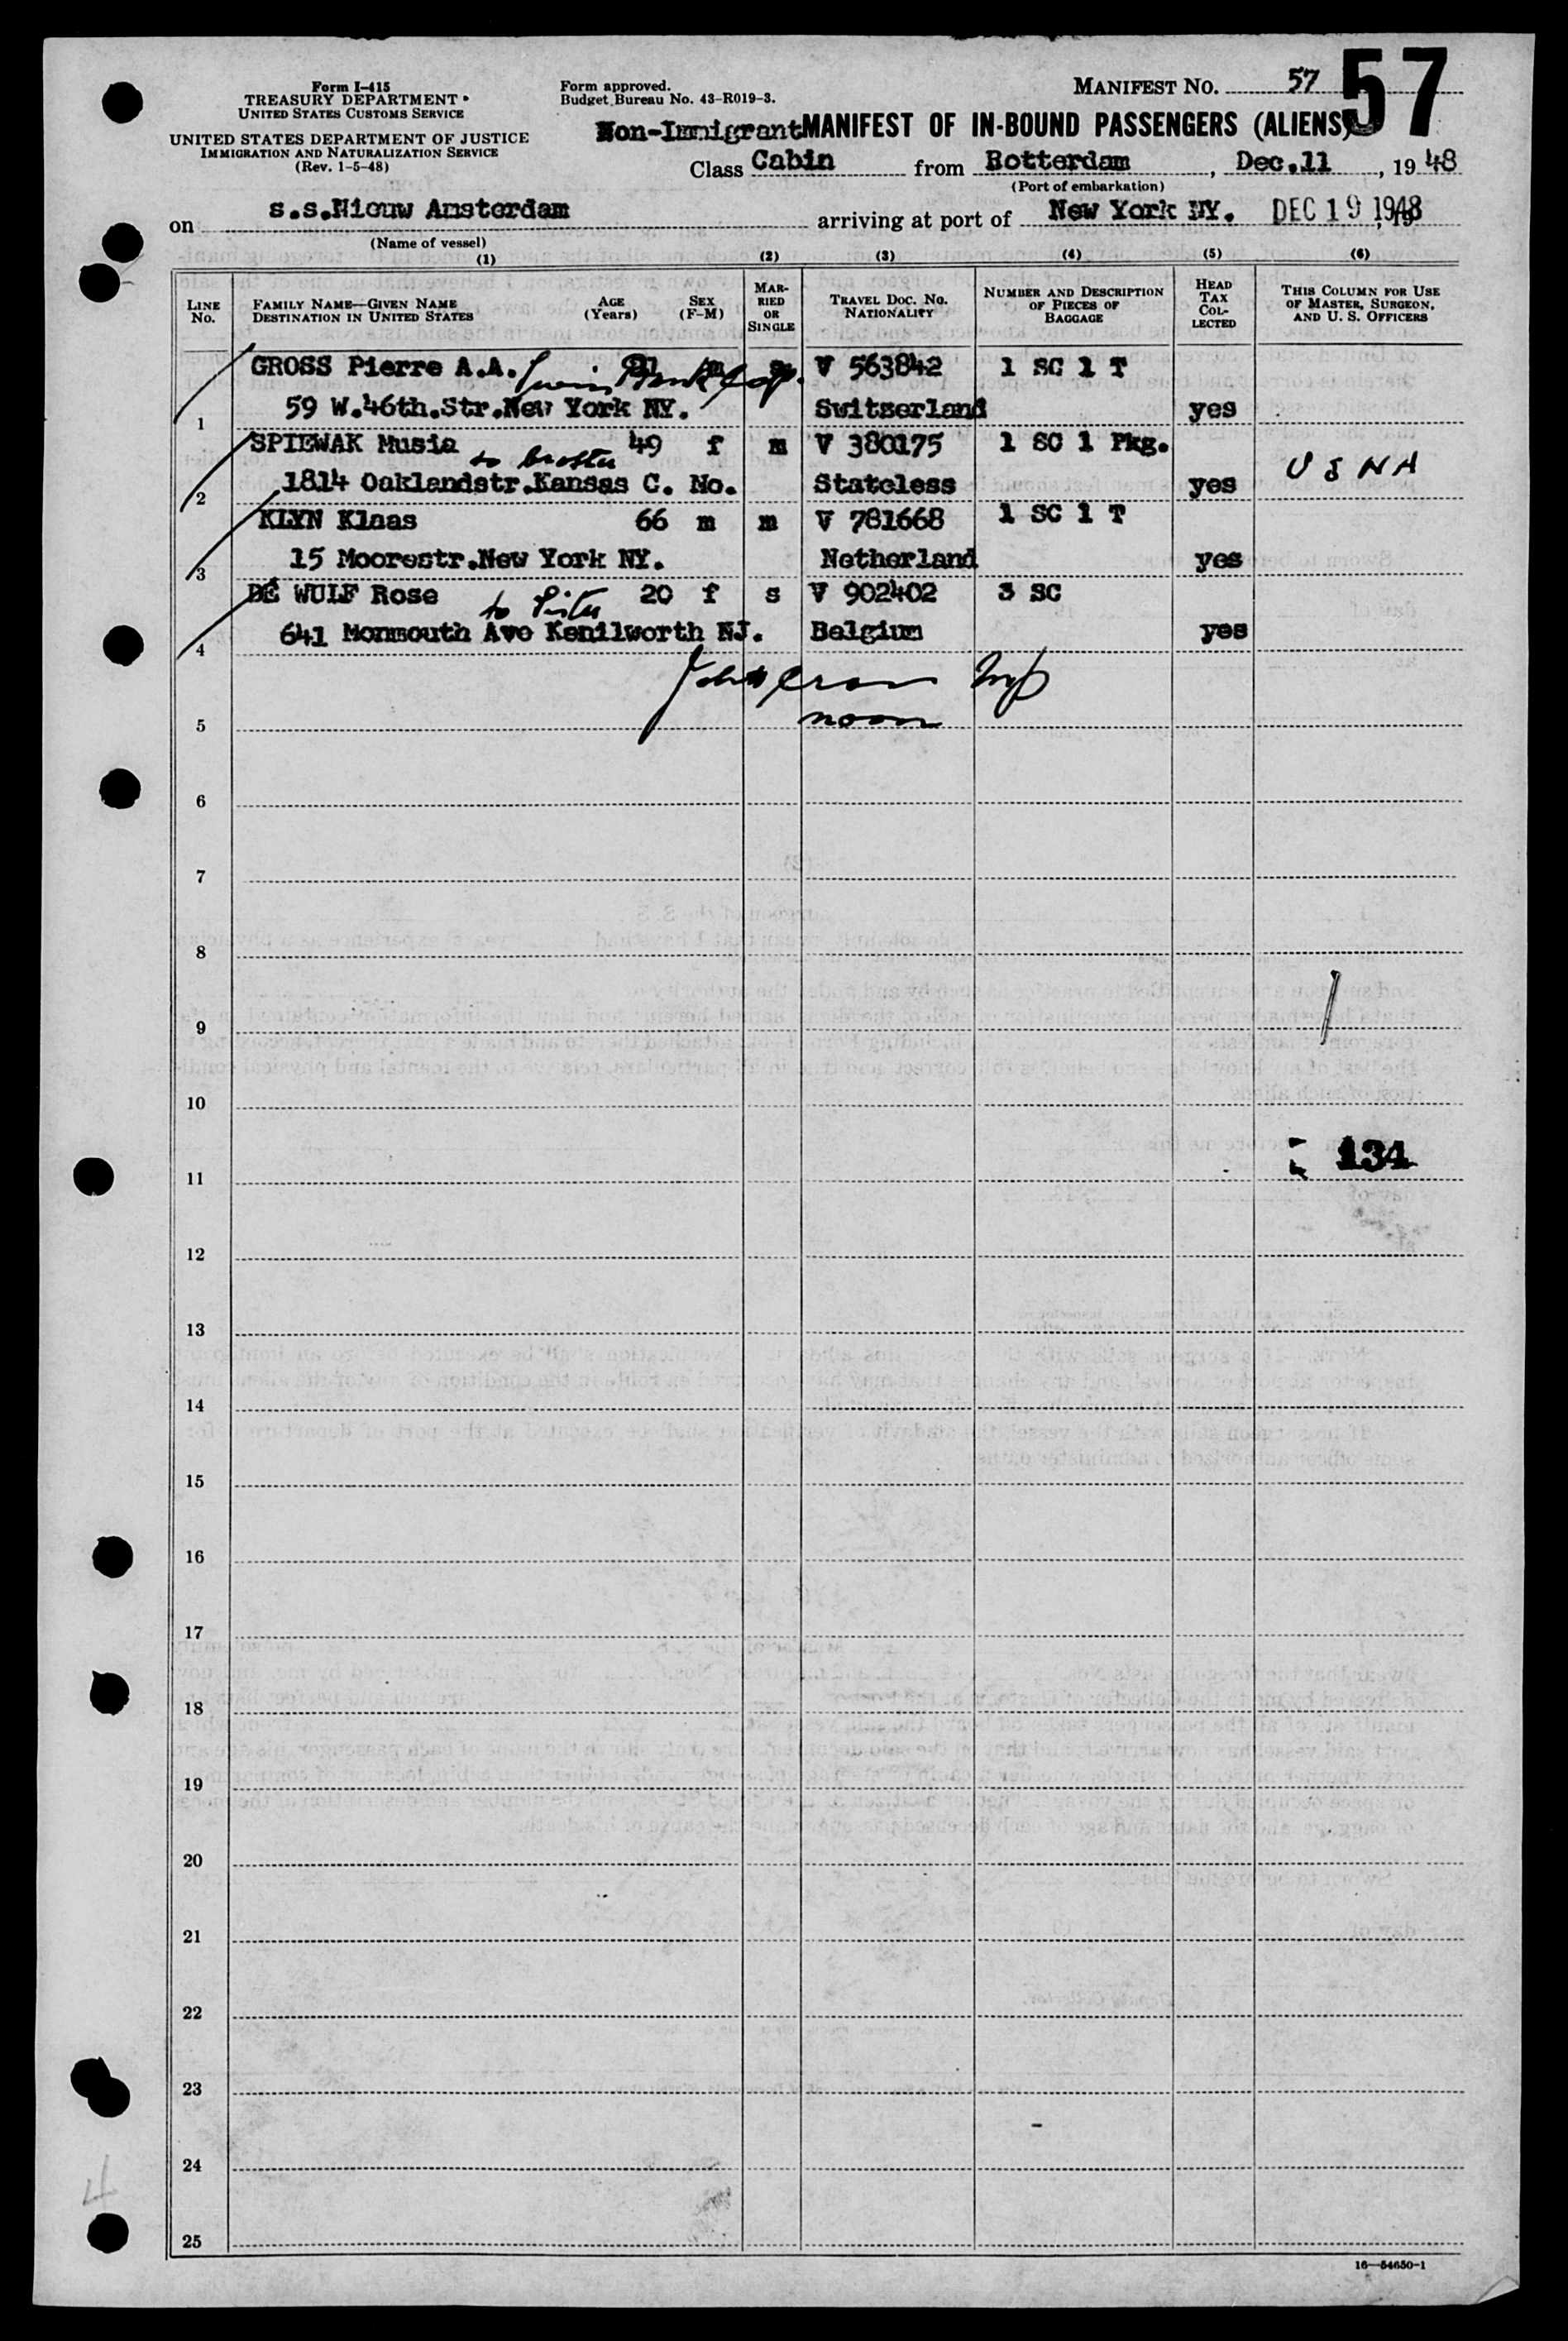 Form I-415
TREASURY DEPARTMENT
UNITED STATES CUSTOMS SERVICE
UNITED STATES DEPARTMENT OF JUSTICE
IMMIGRATION AND NATURALIZATION SERVICE
(Rev. 1-5-48)
Form approved.
Budget Bureau No. 43-R019-3.
MANIFEST NO. 57
57
Non-Immigrant MANIFEST OF IN-BOUND PASSENGERS (ALIENS)
Class Cabin from Rotterdam, Dec.11, 1948
(Port of embarkation)
on s.s.Nieuw Amsterdam arriving at port of New York NY. DEC 19 1948
(Name of vessel)
(1) (2) (3) (4) (5) (6)
LINE No. FAMILY NAME—GIVEN NAME DESTINATION IN UNITED STATES AGE (Years) SEX (F-M) MARRIED OR SINGLE TRAVEL DOC. NO. NATIONALITY NUMBER AND DESCRIPTION OF PIECES OF BAGGAGE HEAD TAX COLLECTED THIS COLUMN FOR USE OF MASTER, SURGEON, AND U. S. OFFICERS
GROSS Pierre A.A. V 563842 1 SC 1 T
1 59 W.46th.Str.New York NY. Switzerland yes
SPIEWAK Musia to brother 49 f m V 380175 1 SC 1 Pkg.
2 1814 Oaklandstr.Kansas C. Mo. Stateless yes U S N A
KLYN Klaas 66 m m V 781668 1 SC 1 T
3 15 Moorestr.New York NY. Netherland yes
DE WULF Rose to Sister 20 f s V 902402 3 SC
4 641 Monmouth Ave Kenilworth NJ. Belgium yes
noon
5
6
7
8
9
10
11 134
12
13
14
15
16
17
18
19
20
21
22
23
24
25
4
16—54650-1